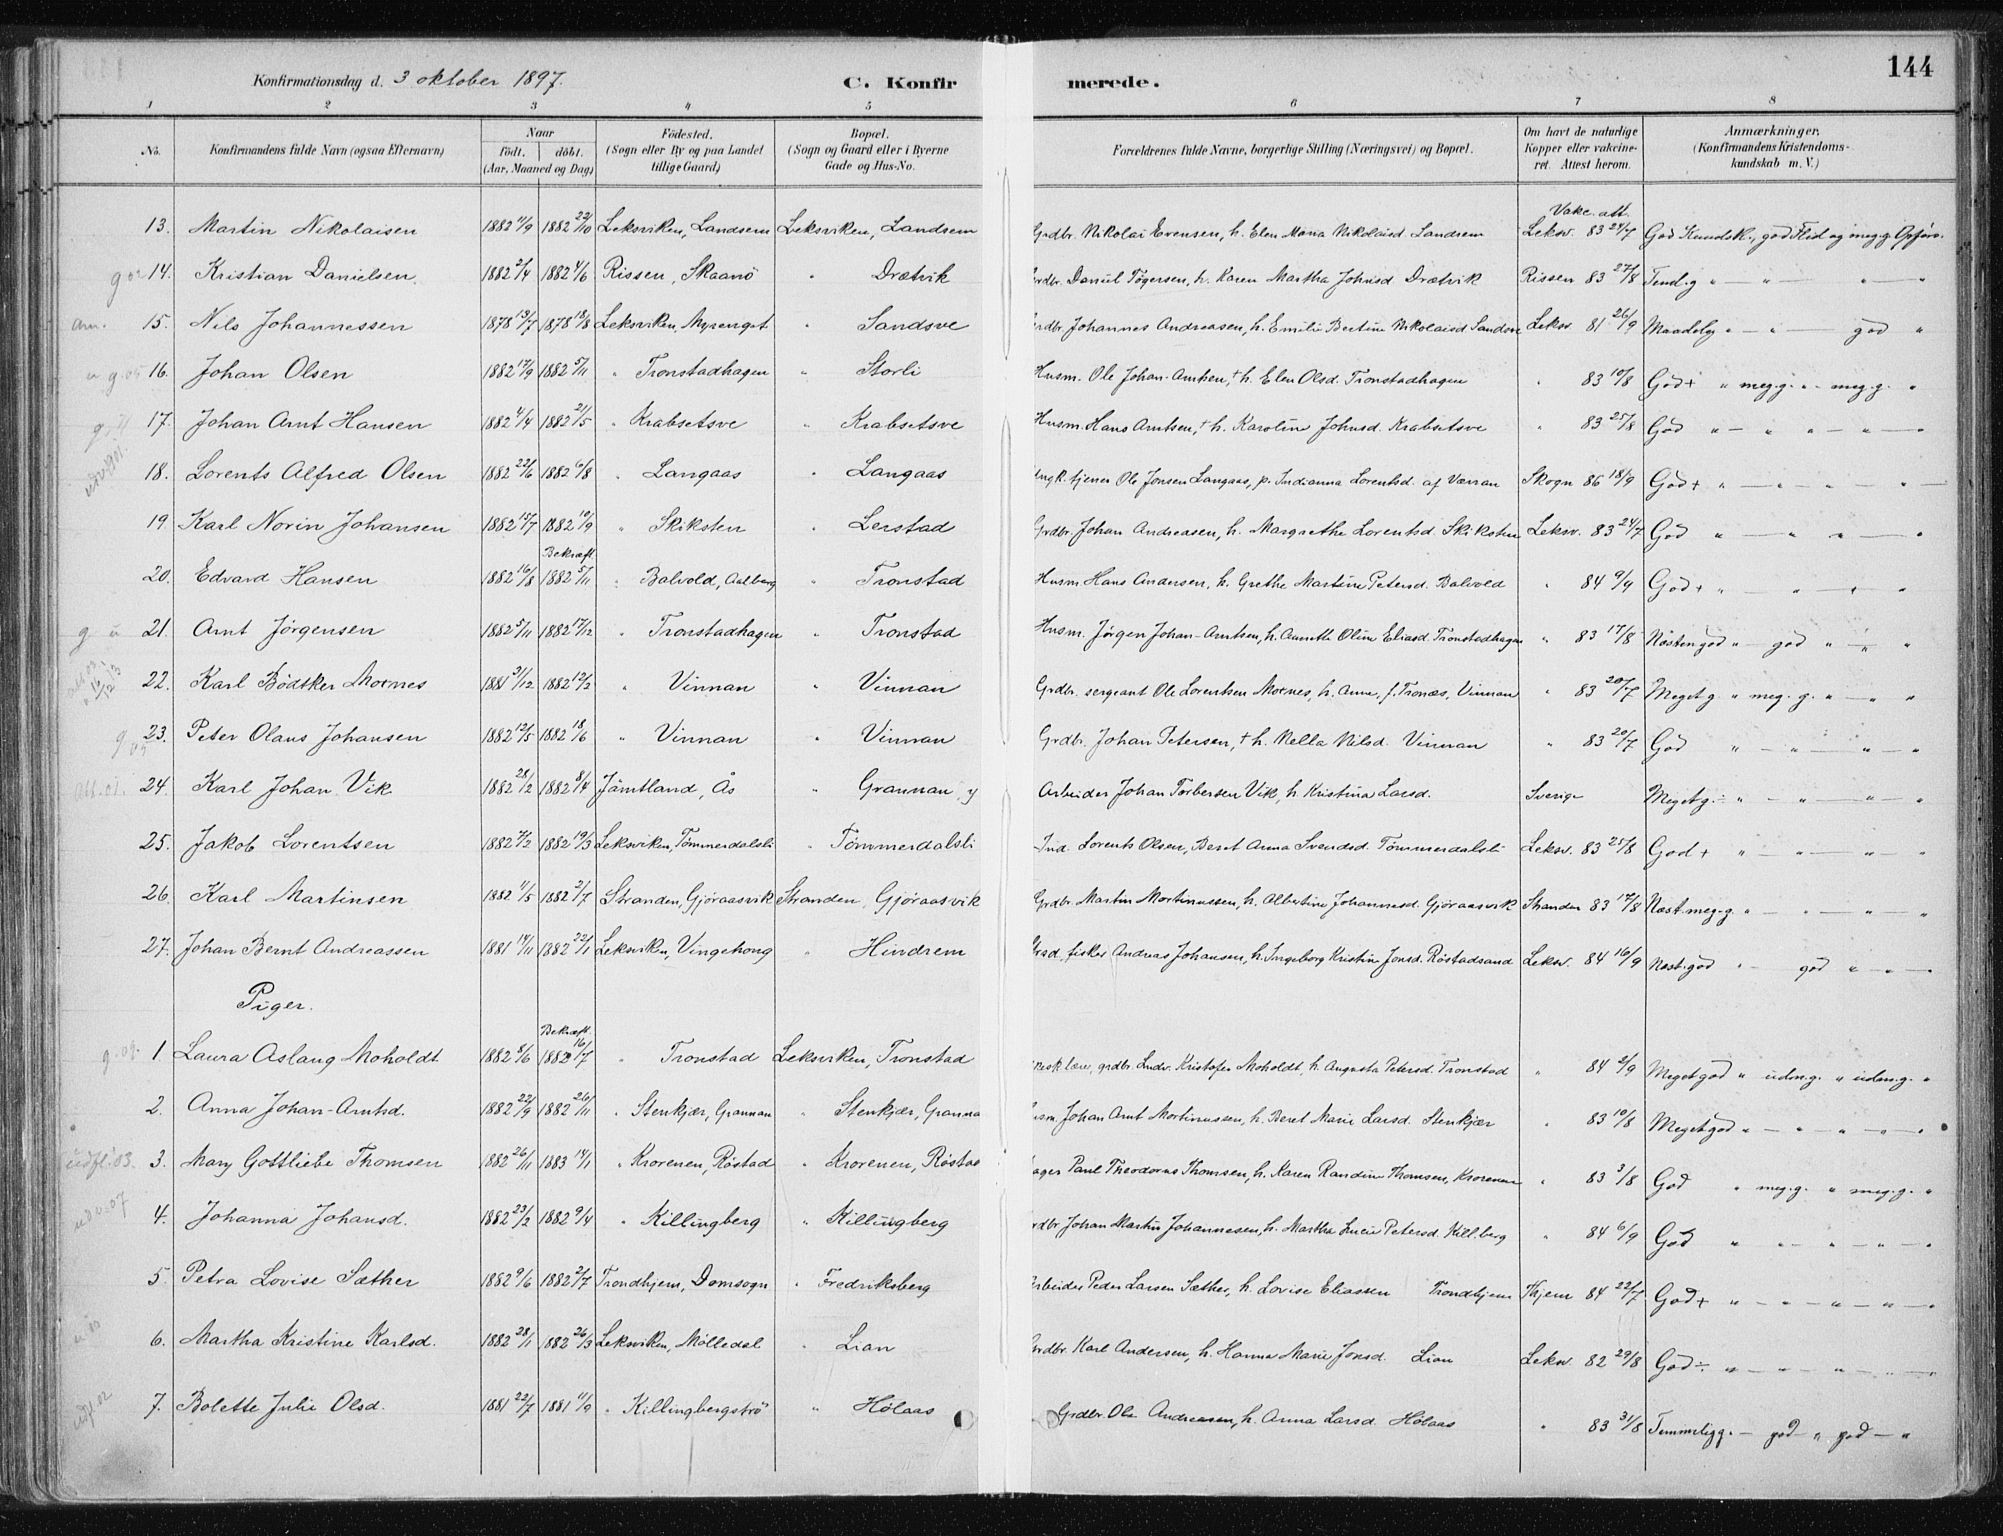 144
Konfirmationsdag d. 3 oktober 1897.
C. Konfir merede.
1 2 3 4 5 6 7 8
No. Konfirmandens fulde Navn (ogsaa Efternavn) Naar födt. döbt. (Aar, Maaned og Dag) Födested. (Sogn eller By og paa Landet tillige Gaard) Bopæl. (Sogn og Gaard eller i Byerne Gade og Hus-No. Forældrenes fulde Navne, borgerlige Stilling (Næringsvei) og Bopæl. Om havt de naturlige Kopper eller vakcineret. Attest herom. Anmærkninger. (Konfirmandens Kristendomskundskab m. V.)
Vakc. att.
13. Martin Nikolaisen 1882 11/9 1882 22/10 Leksviken, Landsem Leksviken, Landsem Grdbr. Nikolai Evensen, h. Elen Maria Nikolaisd. Landsem Leksv. 83 24/7 God Kundsk., god Flid og meg. g. Opförs.
14. Kristian Danielsen. 1882 2/4 1882 4/6 Rissen, Skaanö " Drætvik Grdbr. Daniel Tögersen, h. Karen Martha Johnsd. Drætvik Rissen 83 27/8 Teml. g " — " — " — "
15. Nils Johannessen 1878 13/7 1878 18/8 Leksviken, Myrenget " Sandsve Grdbr. Johannes Andreasen, h. Emilie Bertine Nikolaisd Sandsve Leksv. 81 26/9 Maadelig " — " — god "
16. Johan Olsen 1882 17/9 1882 5/11 " Tronstadhagen " Storli Husm. Ole Johan-Arntsen, † h. Elen Olsd. Tronstadhagen " 83 10/8 God + " meg. g. " — meg. g. "
17. Johan Arnt Hansen 1882 4/4 1882 21/5 " Krabsetsve " Krabsetsve Husm. Hans Arntsen, † h. Karoline Johnsd. Krabsetsve " 83 25/8 God " — " " — " — "
18. Lorents Alfred Olsen 1882 22/6 1882 6/8 " Langaas " Langaas Ungk. tjener Ole Jonsen Langaas, p. Indianna Lorentsd. af Værran Skogn 86 18/9 God + " — " — " — " —
19. Karl Norin Johansen 1882 15/7 1882 10/9 " Skiksten " Lerstad Grdbr. Johan Andreasen, h. Margrethe Lorentsd. Skiksten Leksv. 83 24/7 God " — " " — "
Bekræft.
20. Edvard Hansen 1882 16/8 1882 5/11 " Balvold, Aalberg " Tronstad Husm. Hans Andersen, h. Grethe Martine Petersd. Balvold " 84 9/9 God + " — " " "
21. Arnt Jörgensen 1882 5/11 1882 17/12 " Tronstadhagen " Tronstad Husm. Jörgen Johan-Arntsen, h. Anneth Oline Eliasd. Tronstadhagen " 83 17/8 Nösten god " — god " — " "
22. Karl Bödtker Mornes 1881 31/12 1882 12/2 " Vinnan " Vinnan Grdbr. sergeant Ole Lorentsen Mornes, h. Anne, f. Tronæs, Vinnan " 83 20/7 Meget g. " meg. g. " — " "
23. Peter Olaus Johansen 1882 12/5 1882 18/6 " Vinnan " Vinnan Grdbr. Johan Petersen, † h. Nella Nilsd. Vinnan " 83 20/7 God " — " " — "
24. Karl Johan Vik 1882 28/2 1882 8/4 Jämtland, Ås " Grannan y Arbeider Johan Torbersen Vik, h. Kristina Larsd. Sverige Meget g. ÷ " — " — " — "
25. Jakob Lorentsen 1882 7/2 1882 19/3 Leksviken, Tömmerdalsli " Tömmerdalsli Ind. Lorents Olsen, Beret Anna Svendsd. Tömmerdalsli Leksv. 83 25/8 God + " — " — " — "
26. Karl Martinsen 1882 11/5 1882 2/7 Stranden, Gjöraasvik Stranden, Gjöraasvik Grdbr. Martin Martinussen, h. Albertine Johannesd. Gjöraasvik Stranden 83 17/8 Næst. meg. g. " — " — " — "
27. Johan Bernt Andreassen 1881 14/11 1882 22/1 Leksviken, Vingehong " Hindrem Grad. fisker Andreas Johansen, h. Ingeborg Kristine Jonsd. Röstadsand Leksv. 84 16/9 Næst. god " — god " " — "
Piger.
Bekræft.
1. Laura Aslaug Moholdt 1882 8/6 1882 16/7 " Tronstad Leksviken, Tronstad lærer, grdbr. Ludv. Kristofer Moholdt, h. Augusta Petersd. Tronstad " 84 2/9 Meget god " udm. g. " udm. g. "
2. Anna Johan-Arntsd. 1882 22/9 1882 26/11 " Stenkjær, Grannan " Stenkjær, Granna Husm. Johan Arnt Martinussen, h. Beret Marie Larsd. Stenkjær " 83 10/8 Meget god " — " — " — "
3. Mary Gottliebe Thomsen 1882 26/11 1883 14/1 " Krorenen, Röstad " Krorenen, Röstad Paul Theodorus Thomsen, h. Karen Randine Thomsen, Krorenen " 83 3/8 God " meg. g. " meg. g. "
4. Johanna Johansd. 1882 23/2 1882 9/4 " Killingberg " Killingberg Grdbr. Johan Martin Johannesen, h. Martha Lucie Petersd. Kill.berg " 84 6/9 God " " — " — "
5. Petra Lovise Sæther 1882 9/6 1882 2/7 Trondhjem, Domsogn " Fredriksberg Arbeider Peder Larsen Sæther, h. Lovise Eliassen Trondhjem Thjem 84 22/7 God + " — " — " — "
6. Martha Kristine Karlsd. 1882 28/1 1882 26/3 Leksviken, Mölledal " Lian Grdbr. Karl Andersen, h. Hanna Marie Jonsd. Lian Leksv. 82 29/8 God ÷ " — " — " "
7. Bolette Julie Olsd. 1881 22/7 1881 11/9 " Killingbergströ " Hölaas Grdbr. Ole Andreasen, h. Anna Larsd. Hölaas " 83 31/8 Temmelig g. — god — " god — "